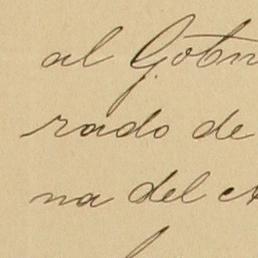 al Gobn
rado de
na del A